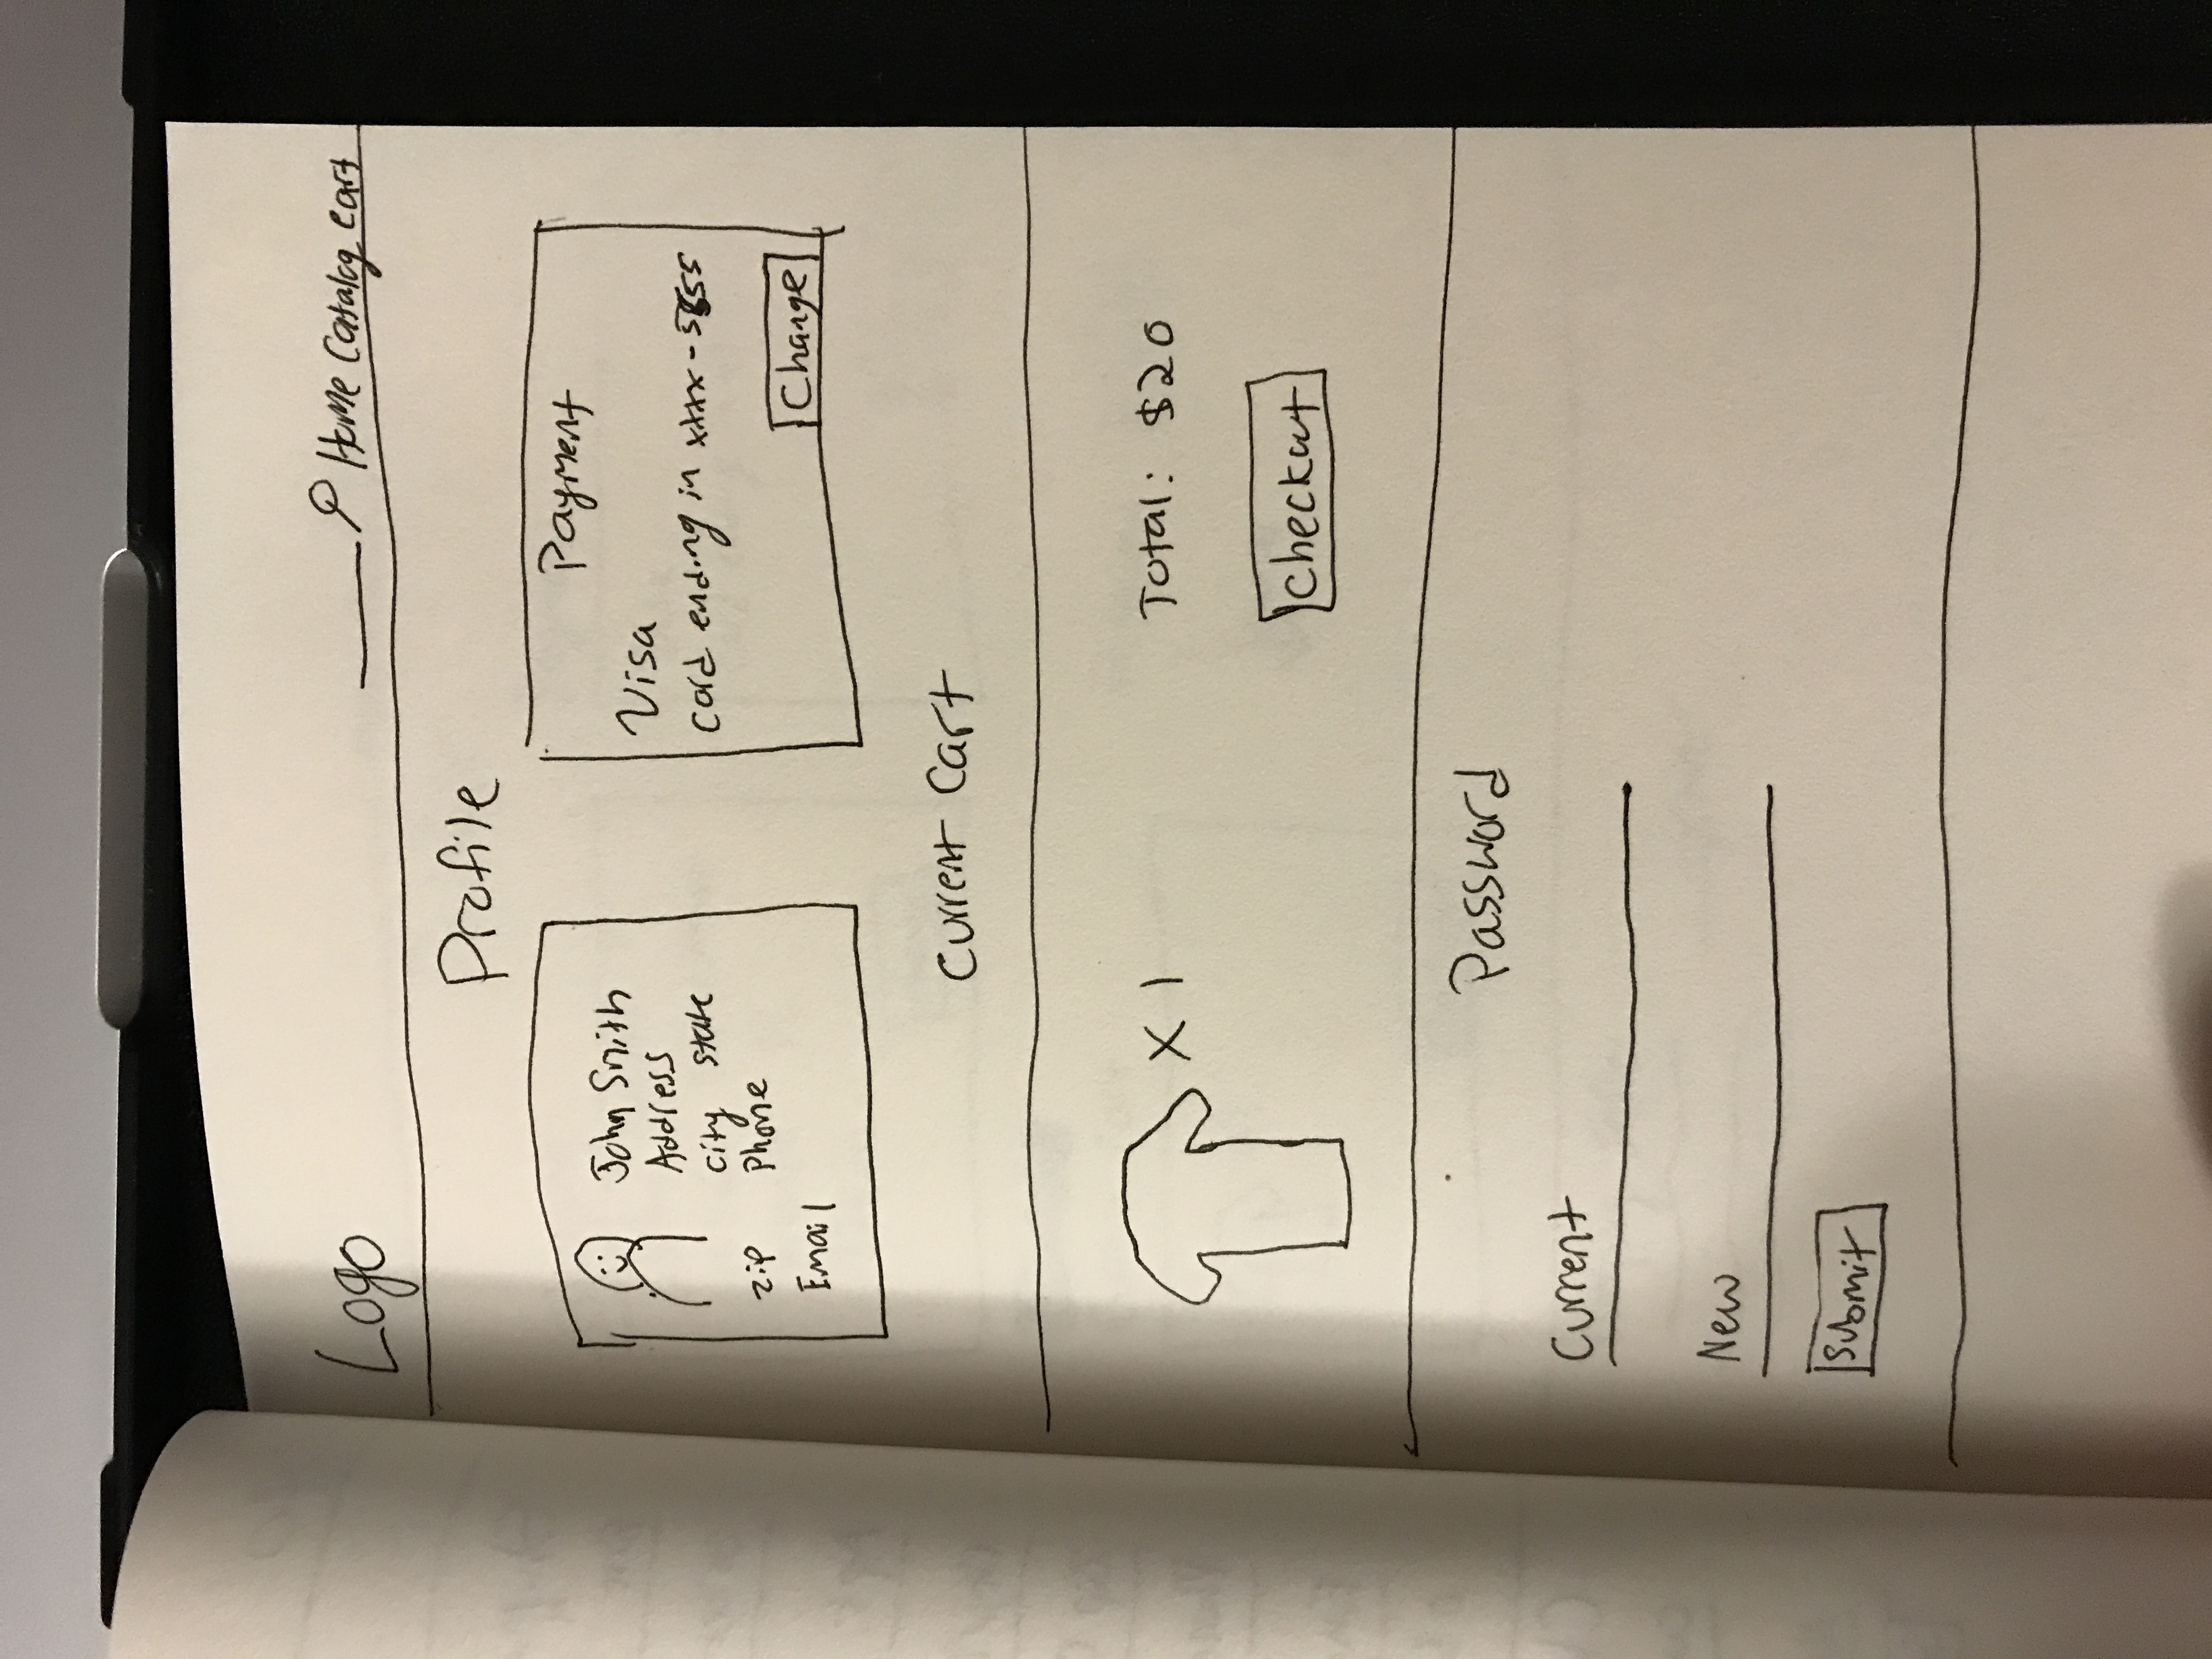 Logo
Home Catalog Cart
Profile
John Smith
Address
City State
Zip Phone
Email
Payment
Visa
Card ending in xxxx-5555
Change
Current Cart
X 1
Total: $20
Checkout
Password
Current
New
Submit